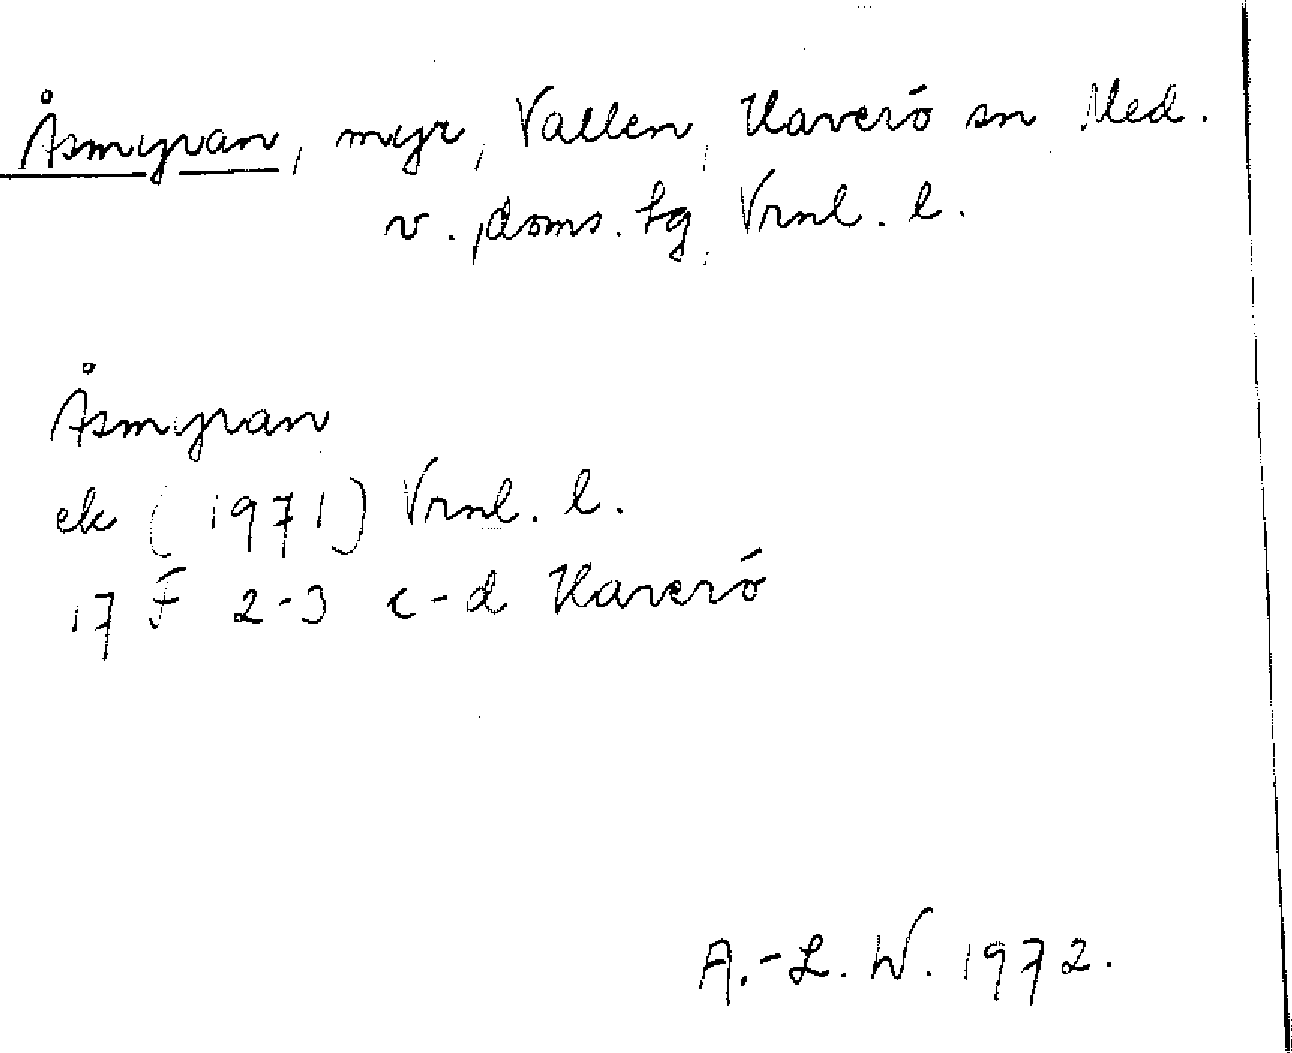 Åsmyran, myr, Vallen, Haverö sn Med.
v. doms. tg, Vrnl. l.
Åsmyran
ek (1971) Vrnl. l.
17 F 2-3 c-d Haverö
A.-L. W. 1972.